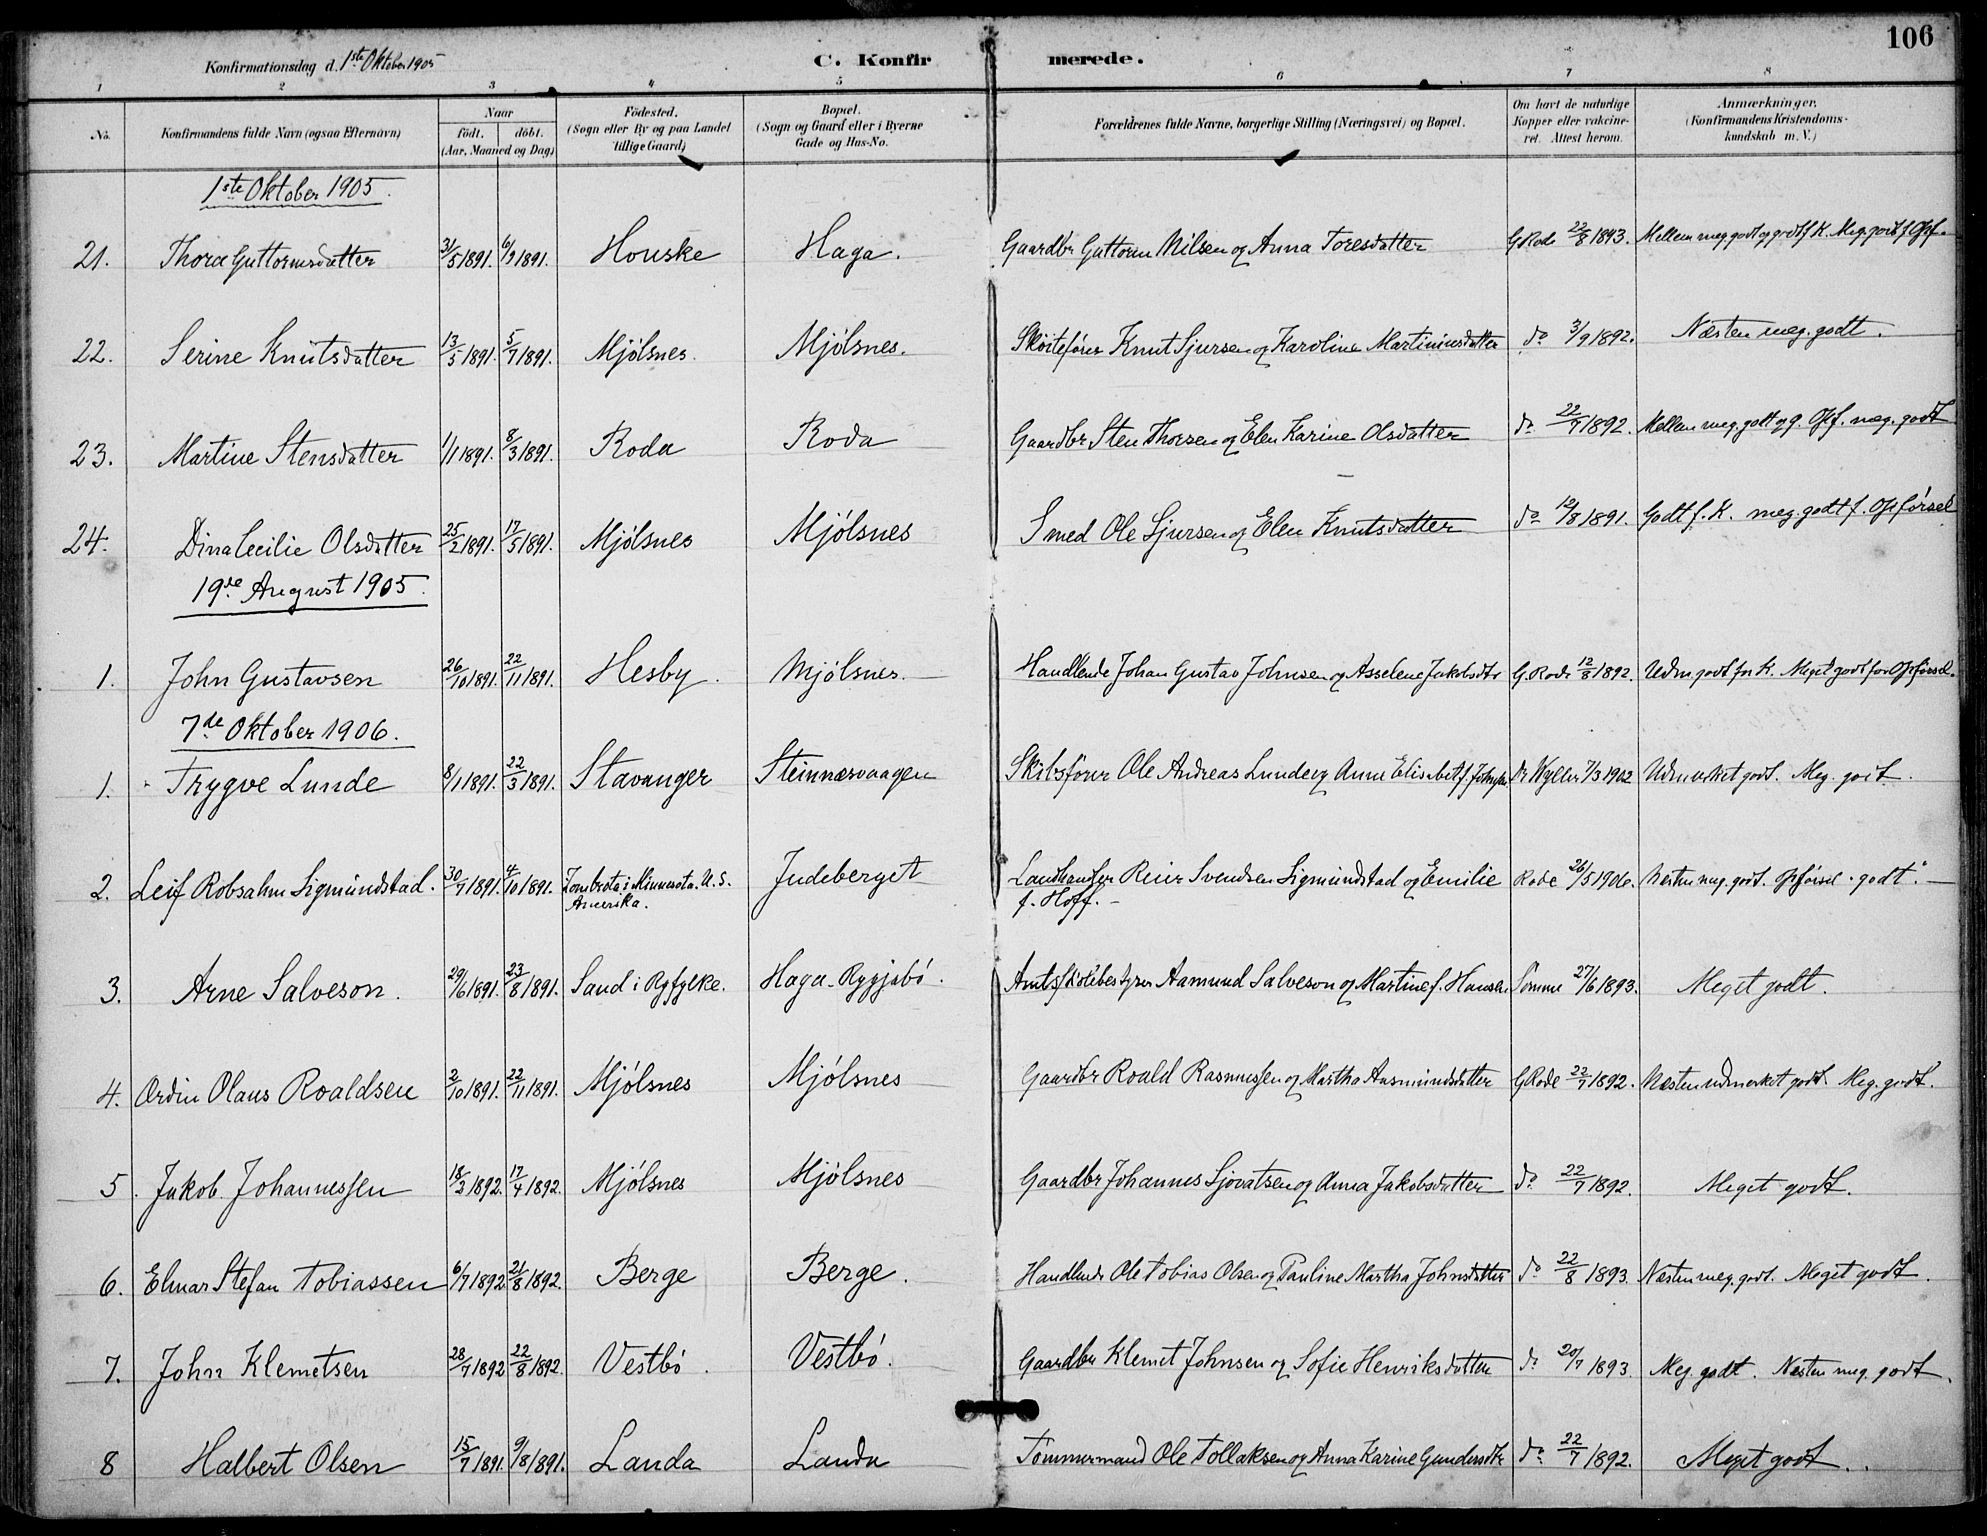 106
Konfirmationsdag d. 1ste Oktober 1905 C. Konfirmerede.
1 2 3 4 5 6 7 8
No. Konfirmandens fulde Navn (ogsaa Efternavn) Naar födt. döbt. (Aar, Maaned og Dag) Födested. (Sogn eller By og paa Landet tillige Gaard) Bopæl. (Sogn og Gaard eller i Byerne Gade og Hus-No. Forældrenes fulde Navne, borgerlige Stilling (Næringsvei) og Bopæl. Om havt de naturlige Kopper eller vakcineret. Attest herom. Anmærkninger. (Konfirmandens Kristendomskundskab m. V.)
1ste Oktober 1905.
21. Thora Guttormsdatter 31/5 1891. 6/9 1891. Houske Haga. Gaardbr Guttorm Nilsen og Anna Toresdatter G Rode 22/8 1893. Mellem meg. godt og godt f. K. Meg. godt f. Opf.
22. Serine Knutsdatter 13/5 1891. 5/7 1891. Mjölsnes. Mjölsnes. Skøitefører Knut Sjursen og Karoline Martiniusdatter do 3/9 1892. Næsten meg. godt.
23. Martine Stensdatter 1/1 1891. 8/3 1891. Roda Roda Gaardbr Sten Thorsen og Elen Karine Olsdatter do 22/7 1892. Mellem meg. godt og g. Opf. meg. godt
24. Dina Cecilie Olsdatter 25/2 1891. 17/5 1891. Mjölsnes Mjölsnes Smed Ole Sjursen og Elen Knutsdatter do 12/8 1891. Godt f. K. meg. godt f. Opførsel
19de August 1905.
1. John Gustavsen 26/10 1891. 22/11 1891. Hesby. Mjölsnes. Handlende Johan Gustav Johnsen og Asselene Jakobsdtr G. Rode 12/8 1892. Udm. godt for K. Meget godt for Opførsel.
7de Oktober 1906.
1. Trygve Lunde 8/1 1891. 22/3 1891. Stavanger Steinnæsvaagen Skibsfører Ole Andreas Lunde og Anne Elisabet f. Dr Wyller 7/3 1902 Udmerket godt. Meg. godt.
2. Leif Robsahm Sigmundstad. 30/7 1891. 4/10 1891. Zombrota i Minnesota. U.S. Amerika. Judeberget Landhandler Reier Svendsen Sigmundstad og Emilie f. Hoff. Rode 26/5 1906. Næsten meg. godt. Opførsel "godt".
3. Arne Salveson. 29/6 1891. 23/8 1891. Sand i Ryfylke. Haga - Rygjabö. Amtsskolebestyrer Aamund Salveson og Martine f. Hansen. Sömme 27/6 1893. Meget godt.
4. Ordin Olaus Roaldsen 2/10 1891. 22/11 1891. Mjölsnes Mjölsnes Gaardbr Roald Rasmussen og Martha Aasmundsdatter G Rode 22/7 1892. Næsten udmerket godt. Meg. godt.
5. Jakob Johannessen 18/3 1892. 17/4 1892. Mjölsnes Mjölsnes Gaardbr Johannes Sjovatsen og Anna Jakobsdatter do 22/7 1892. Meget godt.
6. Elmar Stefan Tobiassen 6/7 1892 21/8 1892. Berge Berge. Handlende Ole Tobias Olsen og Pauline Martha Johnsdatter do 22/8 1893. Næsten meg. godt. Meget godt.
7. John Klemetsen 28/7 1892 22/8 1892. Vestbö. Vestbö. Gaardbr Klemet Johnsen og Sofie Henriksdatter do 20/7 1893. Meg. godt. Næsten meg. godt.
8 Halbert Olsen 15/7 1891. 9/8 1891. Landa Landa Tömmermand Ole Tollaksen og Anna Karine Gundersdtr do 22/7 1892. Meget godt.